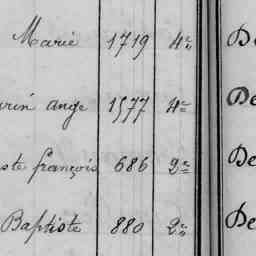 Marie 1719 4e De
ange 1577 4e De
ste françois 686 2e De
Baptiste 880 2e De